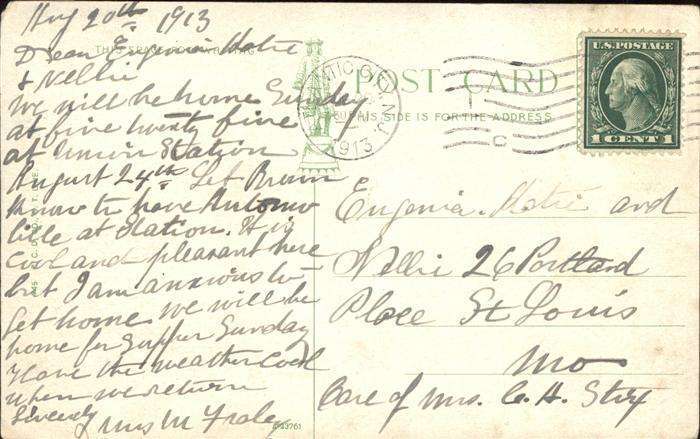 Aug 20th 1913
Dear Eugenia Katie
& Nellie
We will be home Sunday
at five twenty five
at Union Station
August 24th Let Brown
know to have Automo
bile at Station. It is
cool and pleasant here
but I am anxious to
get home we will be
home for Supper Sunday
Have the weather cool
when we return
Sincerely
Mrs M
POST CARD
THIS SIDE IS FOR THE ADDRESS
N.J.
1913
U.S. POSTAGE
1 CENT 1
Eugenia. Katie and
Nellie 26 Portland
Place St Louis
Mo
Care of Mrs. C. H.